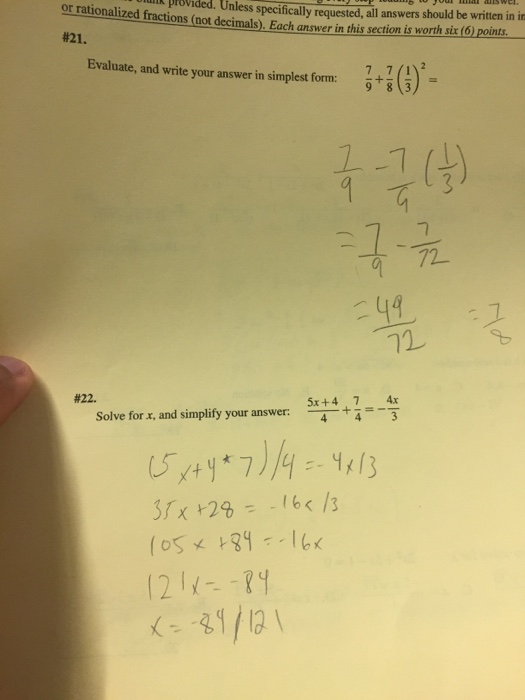 provided. Unless specifically requested, all answers should be written in
or rationalized fractions (not decimals). Each answer in this section is worth six (6) points.
#21.
Evaluate, and write your answer in simplest form: 7/9 + 7/8 (1/3)² =
7/9 - 7/9 (1/3)
= 7/9 - 7/72
= 49/72 = 7/8
#22.
Solve for x, and simplify your answer: 5x+4/4 + 7/4 = - 4x/3
(5x+4*7)/4 = -4x/3
35x+28 = -16x/3
105x+84 = -16x
121x = -84
x = -84/121